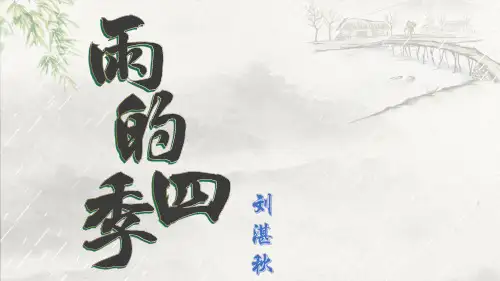 雨的四季
刘湛秋